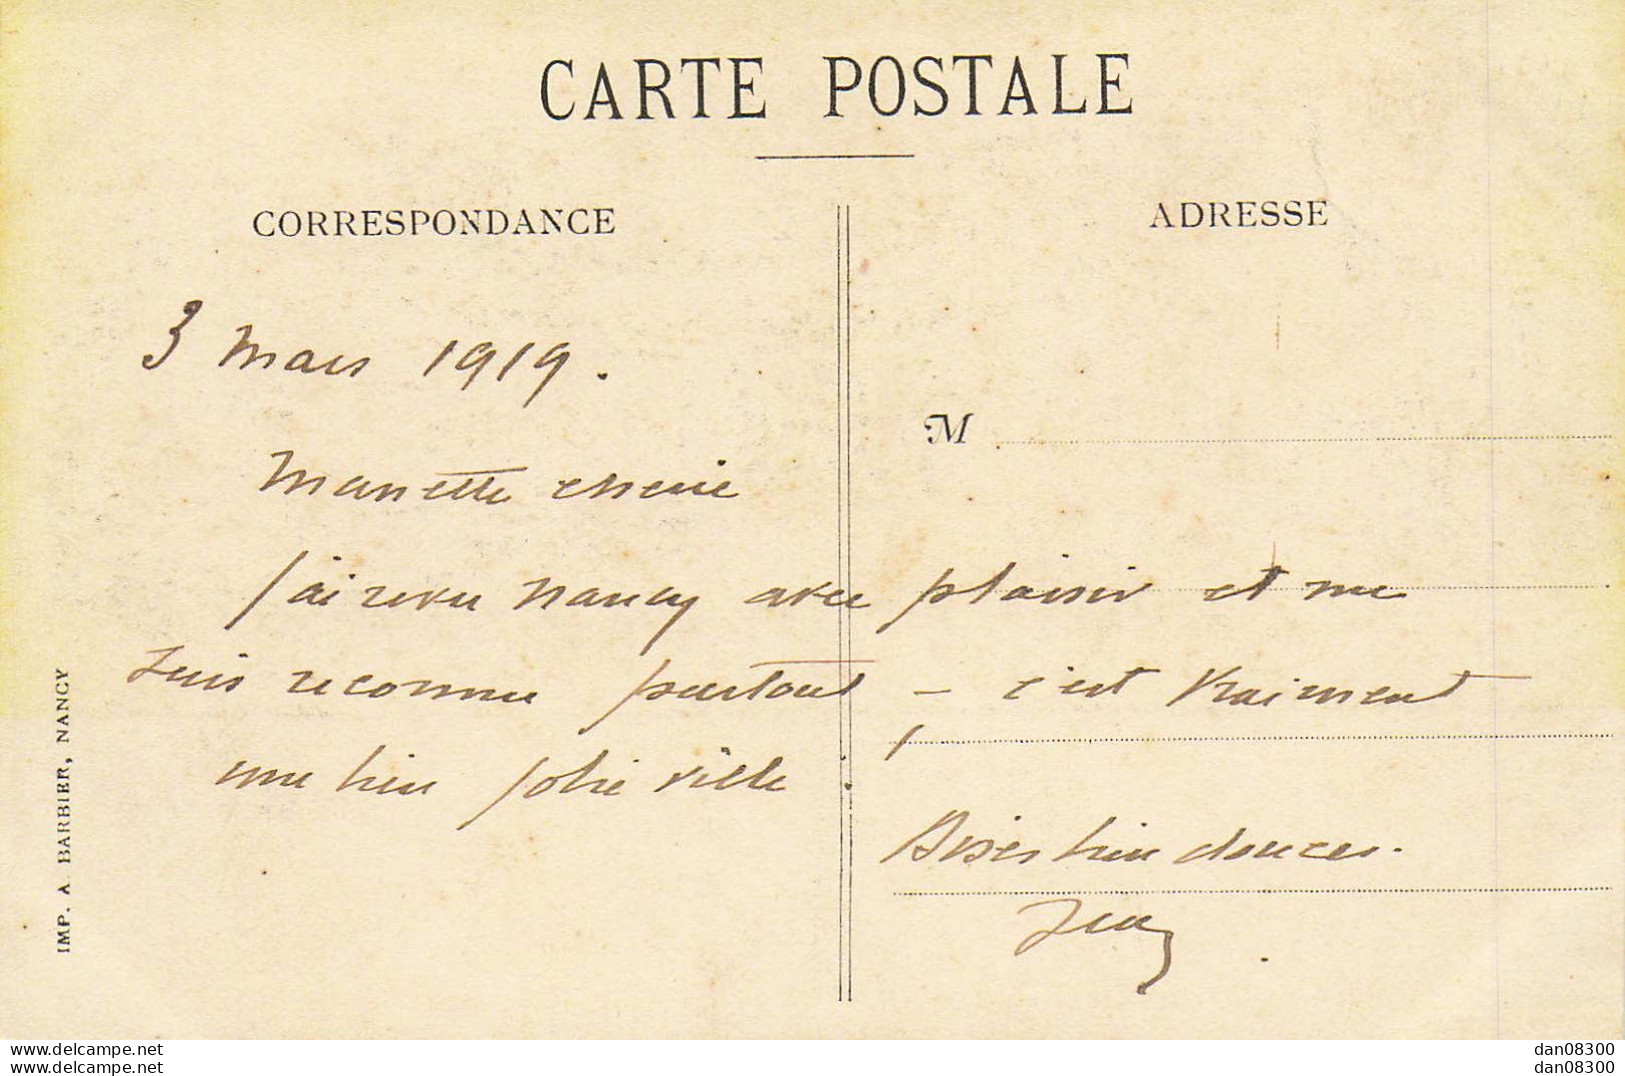 CARTE POSTALE
CORRESPONDANCE
ADRESSE
3 Mars 1919.
M
Manette cherie
j'ai revu Nancy avec plaisir et me
suis reconnu partout - c'est vraiment
une bien jolie ville.
Bises bien douces.
Jean
IMP. A. BARBIER, NANCY
www.delcampe.net
www.delcampe.net
dan08300
dan08300